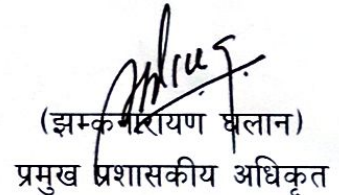 (झमकनारायण घलान)
प्रमुख प्रशासकीय अधिकृत